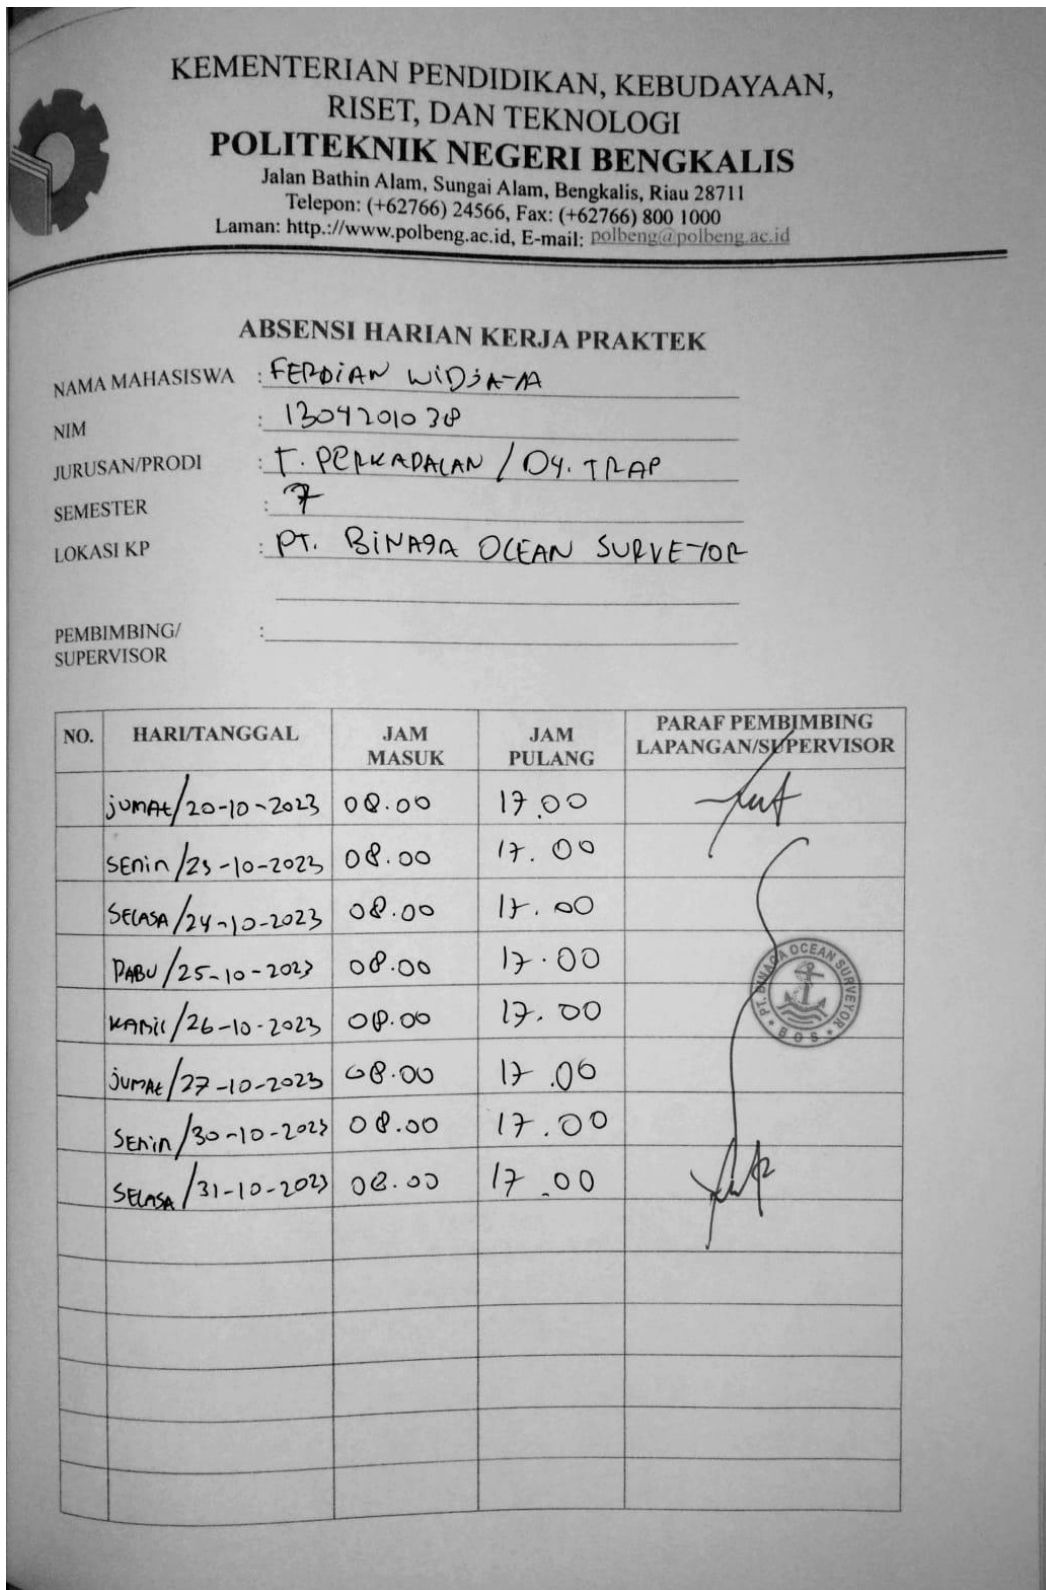 KEMENTERIAN PENDIDIKAN, KEBUDAYAAN,
RISET, DAN TEKNOLOGI
POLITEKNIK NEGERI BENGKALIS
Jalan Bathin Alam, Sungai Alam, Bengkalis, Riau 28711
Telepon: (+62766) 24566, Fax: (+62766) 800 1000
Laman: http.://www.polbeng.ac.id, E-mail: polbeng@polbeng.ac.id
ABSENSI HARIAN KERJA PRAKTEK
NAMA MAHASISWA : FERDIAN WIDJAYA
NIM : 1304201038
JURUSAN/PRODI : T. PERKAPALAN / D4. TRAP
SEMESTER : 7
LOKASI KP : PT. BINAGA OCEAN SURVEYOR
PEMBIMBING/ :
SUPERVISOR
NO. HARI/TANGGAL JAM MASUK JAM PULANG PARAF PEMBIMBING LAPANGAN/SUPERVISOR
jUMAt/20-10-2023 08.00 17.00
SEnin/23-10-2023 08.00 17.00
SELASA/24-10-2023 08.00 17.00
RABU/25-10-2023 08.00 17.00
KAMiS/26-10-2023 08.00 17.00
jUMAt/27-10-2023 08.00 17.00
SEnin/30-10-2023 08.00 17.00
SELASA/31-10-2023 08.00 17.00
PT. BINAGA OCEAN SURVEYOR
BOS